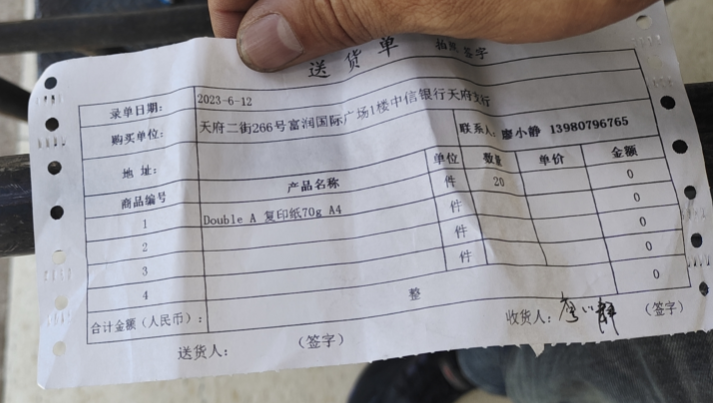 送货单 拍照 签字
录单日期: 2023-6-12
购买单位: 天府二街266号富润国际广场1楼中信银行天府支行
地址: 联系人: 廖小静 13980796765
商品编号 产品名称 单位 数量 单价 金额
1 Double A 复印纸70g A4 件 20 0
2 件 0
3 件 0
4 0
合计金额(人民币): 整 0
送货人: (签字) 收货人: 廖小静 (签字)